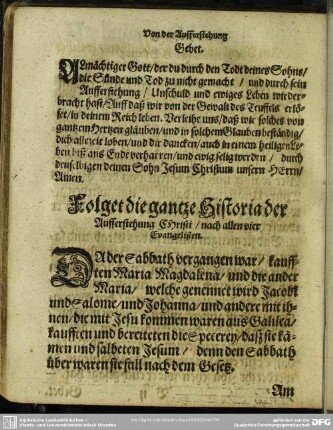 Von der Aufferstehung
Gebet.
ALmächtiger Gott/ der du durch den Todt deines Sohns/
die Sünde und Tod zu nicht gemacht / und durch sein
Aufferstehung / Unschuld und ewiges Leben wieder-
bracht hast/ Auff daß wir von der Gewalt des Teuffels erlö-
set/ in deinem Reich leben. Verleihe uns/ daß wir solches von
gantzem Hertzen gläuben/ und in solchem Glauben beständig/
dich allezeit loben/ und dir dancken/ auch in einem heiligen Le-
ben biß ans Ende verharren/ und ewig selig werden / durch
denselbigen deinen Sohn Jesum Christum unsern HErrn/
Amen.
Folget die gantze Historia der
Aufferstehung CHristi / nach allen vier
Evangelisten.
DA der Sabbath vergangen war/ kauff-
ten Maria Magdalena/ und die ander
Maria/ welche genennet wird Jacobi
und Salome/ und Johanna/ und andere mit ih-
nen/ die mit Jesu kommen waren aus Galilea/
kaufften und bereiteten die Specerey/ daß sie kä-
men und salbeten Jesum/ denn den Sabbath
über waren sie still nach dem Gesetz.
Am